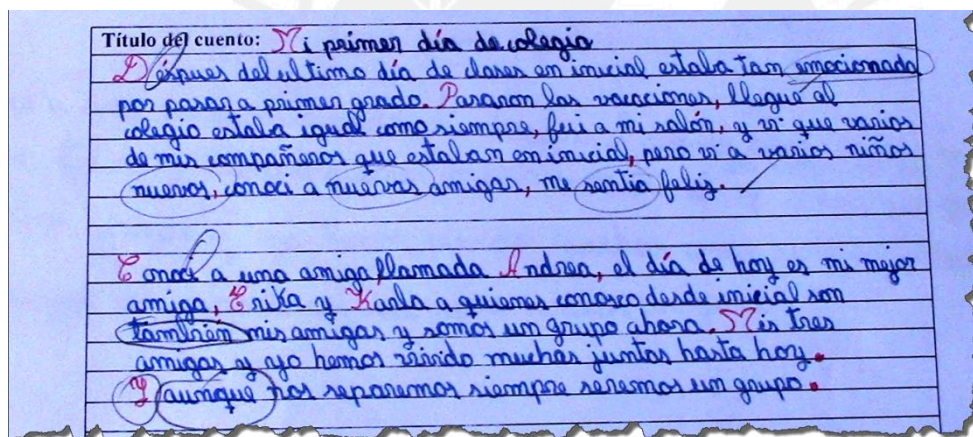 Título del cuento: Mi primer día de colegio
Despues del ultimo día de clases en inicial estaba tam emocionada
por pasar a primer grado. Pasaron las vacaciones, llegué al
colegio estaba igual como siempre, fui a mi salón, y vi que varios
de mis compañeros que estaban en inicial, pero vi a varios niños
nuevos, conoci a nuevas amigas, me sentia feliz.
Conocí a una amiga llamada Andrea, el día de hoy es mi mejor
amiga, Erika y Karla a quienes conosco desde inicial son
también mis amigas y somos un grupo ahora. Mis tres
amigas y yo hemos vivido muchas juntas hasta hoy.
Y aunque nos separemos siempre seremos un grupo.